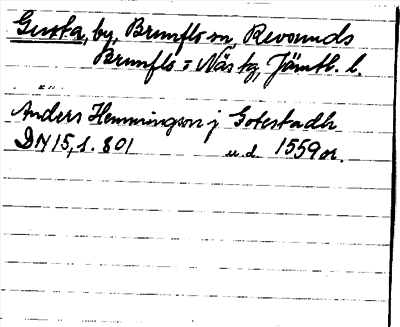 Gusta, by, Brunflo sn, Revsunds
Brunflo o Näs tg, Jämtl. l.
Anders Hemmingson j Gotestadh
DN 15, 1. 801 u.d. 1559 or.